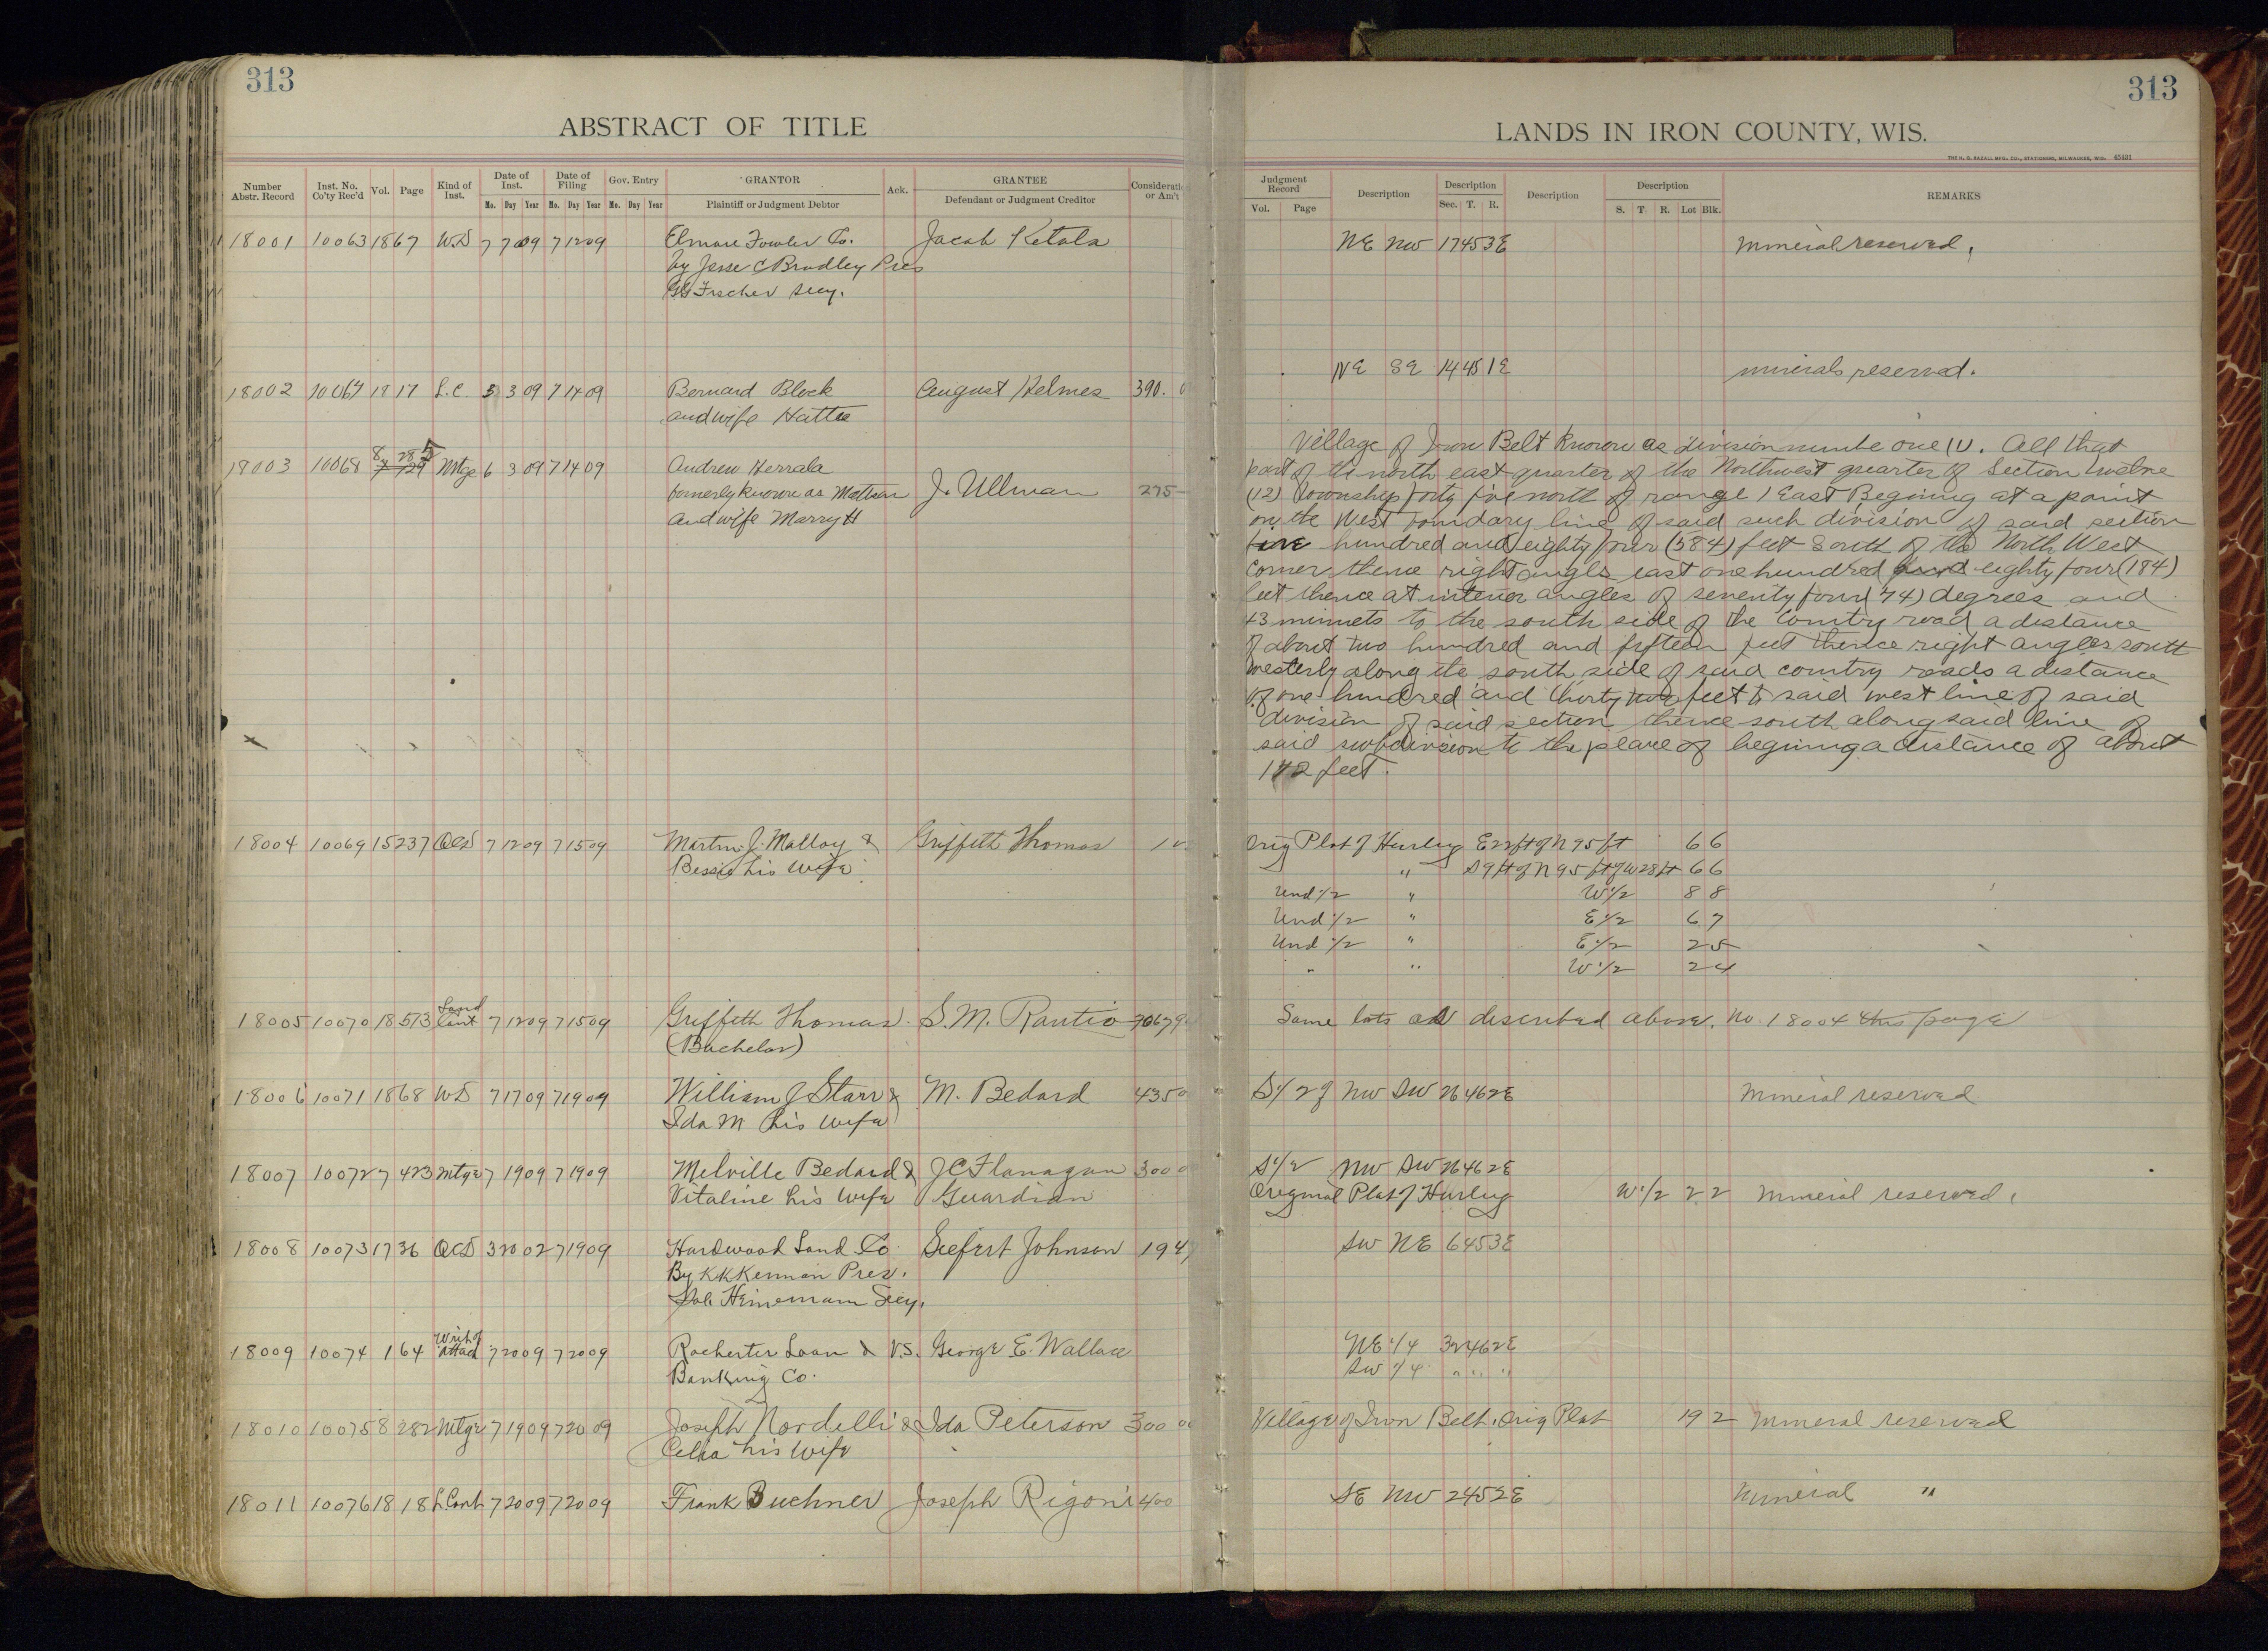 313
ABSTRACT OF TITLE
Number Abstr. Record Inst. No. Co'ty Rec'd Vol. Page Kind of Inst. Date of Inst. Date of Filing Gov. Entry GRANTOR Ack. GRANTEE Consideration or Am't
Mo. Day Year Mo. Day Year Mo. Day Year Plaintiff or Judgment Debtor Defendant or Judgment Creditor
18001 10063 18 67 W.D 7 7 09 7 12 09 Elmore Fowler Co. Jacob Ketola
by Jesse C Bradley Pres
Fischer Secy.
18002 10067 18 17 L.C. 5 3 09 7 14 09 Bernard Block August Helmes 390.
and wife Hattie
18003 10068 8 285 Mtge 6 3 09 7 14 09 Andrew Herrala
formerly known as Mattson J. Ullman 275-
and wife Marry H
18004 10069 15 237 QCD 7 12 09 7 15 09 Martin J. Malloy & Griffith Thomas 1
Bessie his wife
18005 10070 18 513 Land Cont 7 12 09 7 15 09 Griffith Thomas S. M. Rautio
(Bachelor)
18006 10071 18 68 WD 7 17 09 7 19 09 William J Starr & M. Bedard 435 0
Ida M his wife
18007 10072 7 423 Mtge 7 19 09 7 19 09 Melville Bedard & J C Flanagan 300
Vitaline his wife Guardian
18008 10073 17 36 QCD 3 20 02 7 19 09 Hardwood Land Co. Seefert Johnson 194
By K K Kennan Pres.
Heinemann Secy.
18009 10074 1 64 Writ of Attach 7 20 09 7 20 09 Rochester Loan & V.S. George E. Wallace
Banking Co.
18010 10075 8 282 Mtge 7 19 09 7 20 09 Joseph Nordelli & Ida Peterson 300 00
Celia his wife
18011 10076 18 18 L Cont 7 20 09 7 20 09 Frank Buchner Joseph Rigoni 400
313
LANDS IN IRON COUNTY, WIS.
THE H. G. RAZALL MFG. CO., STATIONERS, MILWAUKEE, WIS. 45431
Judgment Record Description Description Description Description REMARKS
Vol. Page Sec. T. R. S. T. R. Lot Blk.
NE NW 17 45 3E Mineral reserved,
NE SE 14 45 1E minerals reserved.
Village of Iron Belt known as division numbe one (1). All that
part of the north east quarter of the Northwest quarter of Section twelve
(12) Township forty five north of range 1 East Begining at a point
on the West boundary line of said such division of said section
five hundred and eighty four (584) feet South of the North West
corner thence right angls east one hundred eighty four (184)
feet thence at interior angles of seventy four (74) degrees and
43 minnets to the south side of the Country road a distance
of about two hundred and fifteen feet thence right angles south
westerly along the south side of said country roads a distance
of one hundred and thirty two feet to said west line of said
division of said section thence south along said line of
said subdivision to the place of begining a distance of about
112 feet.
Orig Plat of Hurley E22ft of N 95 ft 6 6
" S 9 ft of N 95 ft of W 28 ft 6 6
Und 1/2 " W 1/2 8 8
Und 1/2 " E 1/2 6 7
Und 1/2 " E 1/2 2 5
" " W 1/2 2 4
Same lots as described above. No. 18004 this page
S 1/2 of NW SW 26 46 2E Mineral reserved
S 1/2 NW SW 26 46 2E
Original Plat of Hurley W 1/2 2 2 Mineral reserved,
SW NE 6 45 3E
NE 1/4 32 46 2E
SW 1/4 " " "
Village of Iron Belt. Orig Plat 19 2 Mineral reserved
SE NW 24 52E Mineral "